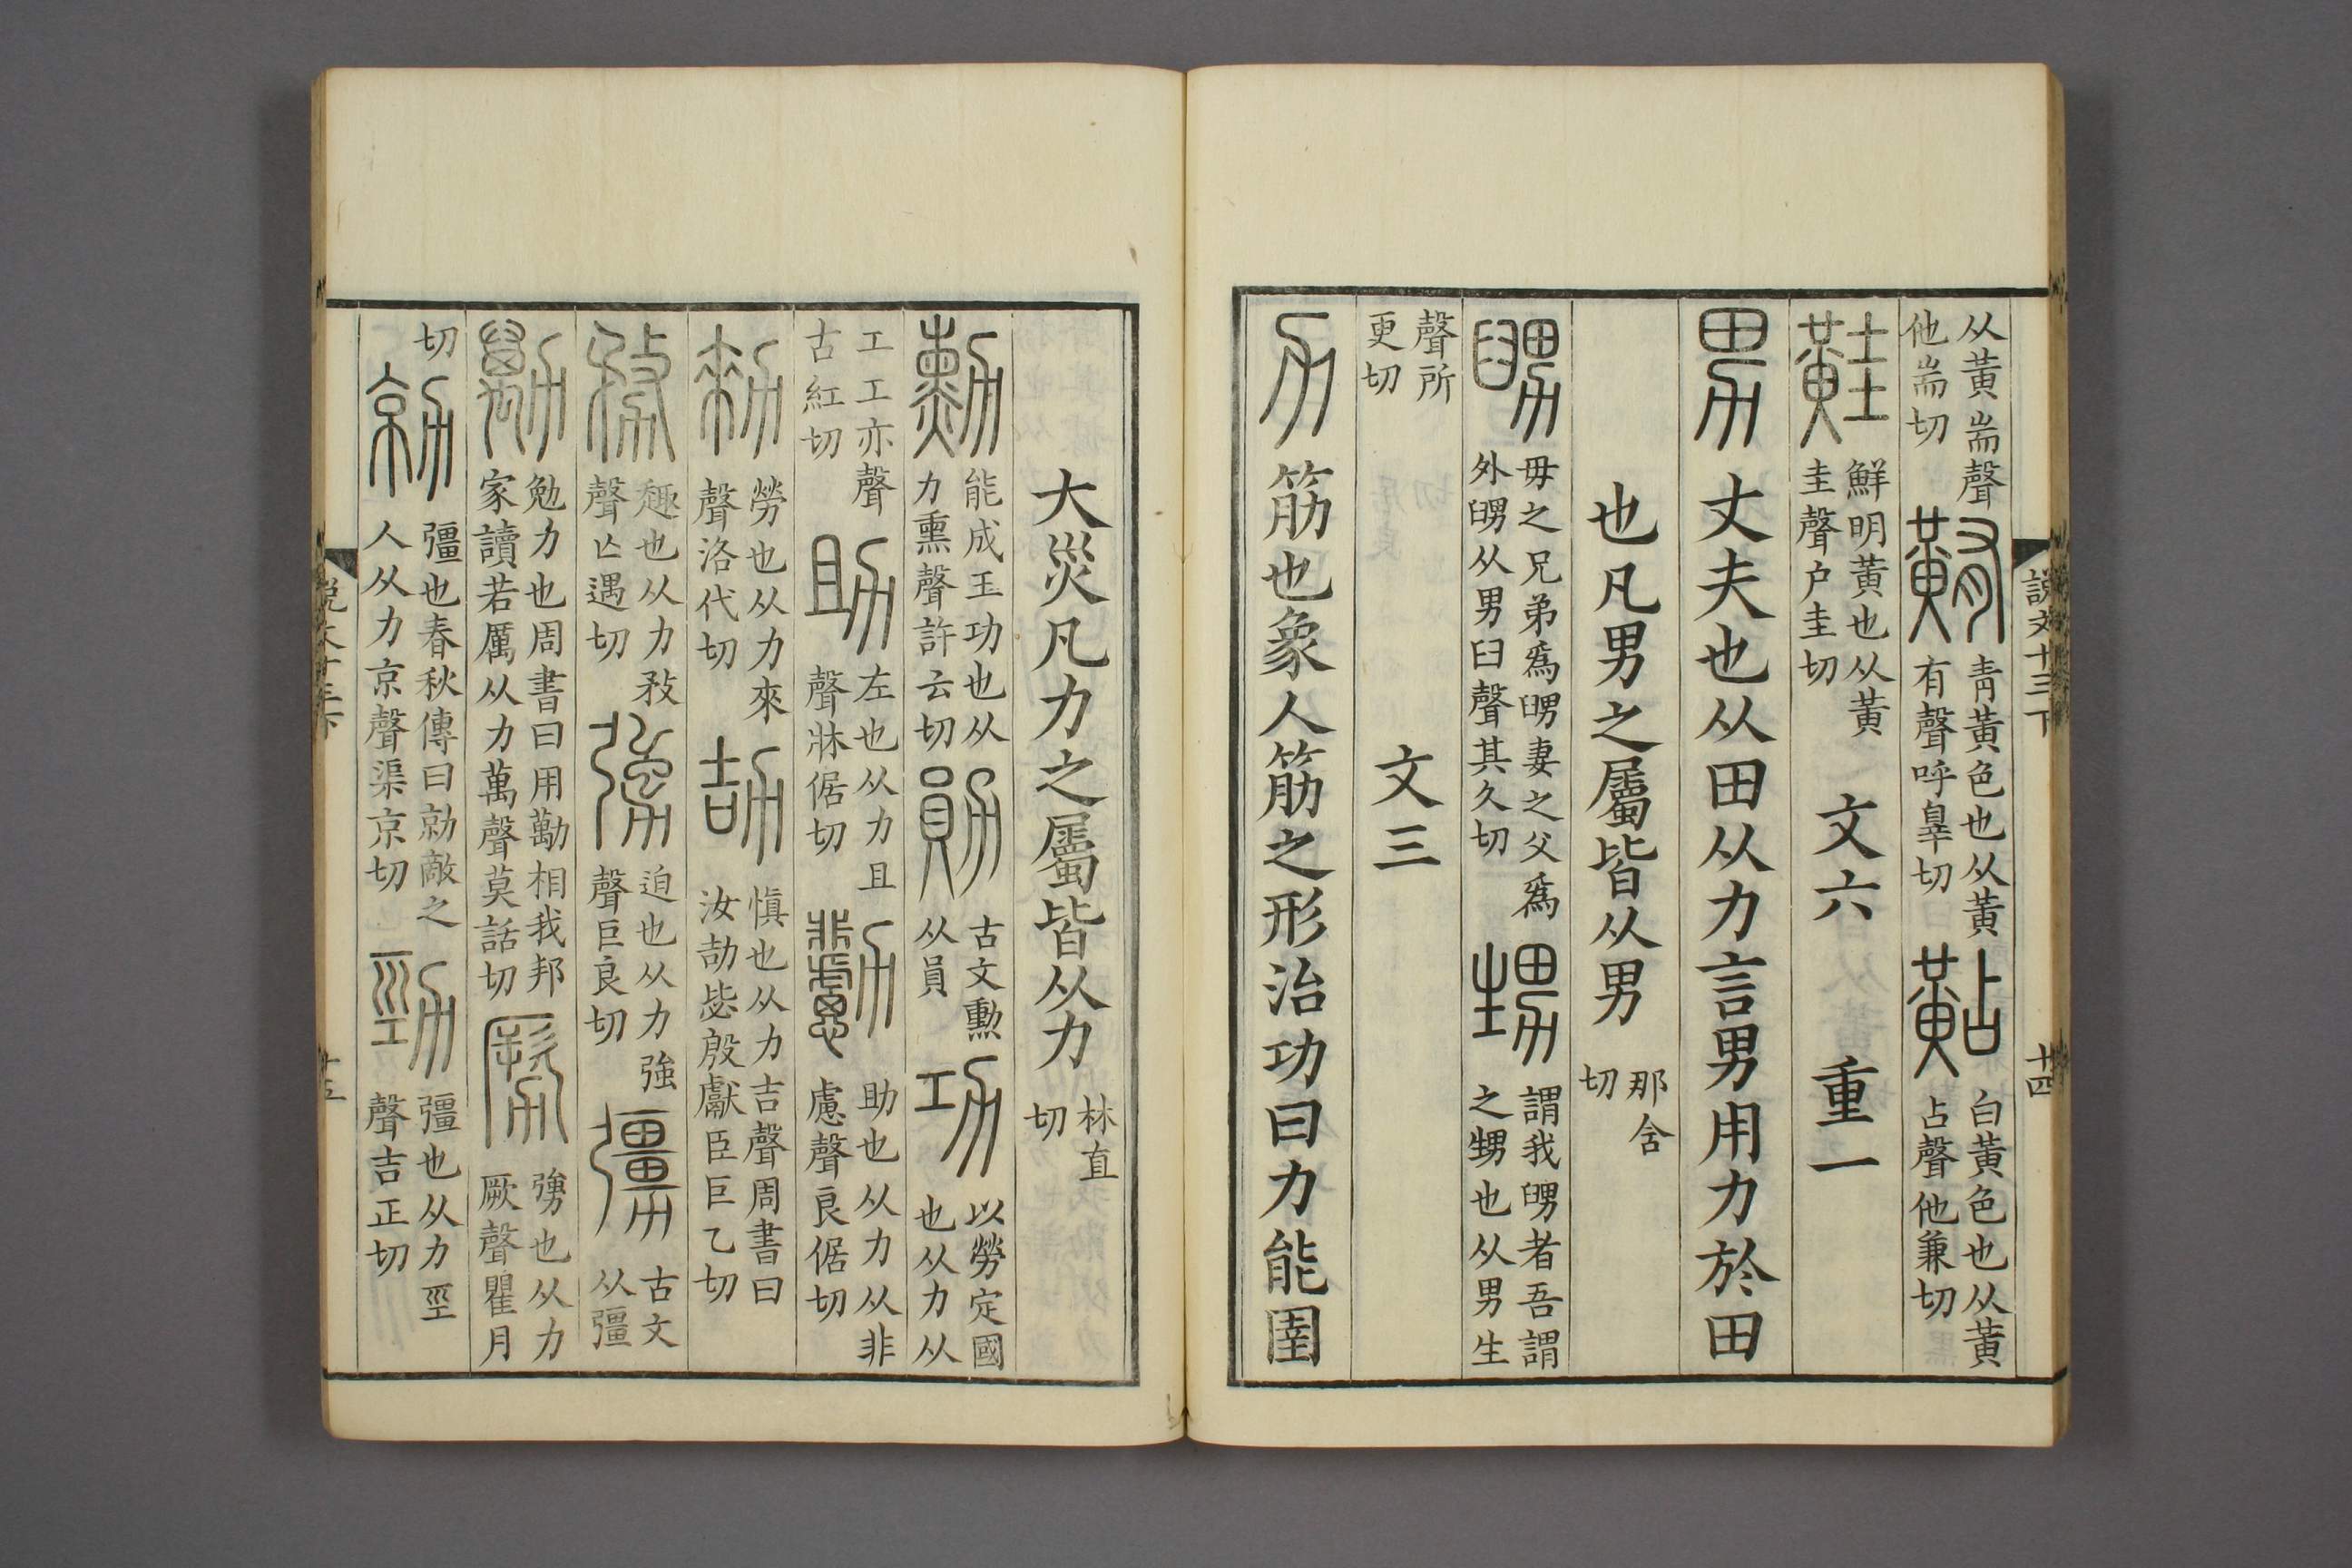 說文十三下　十四
从黃耑聲他耑切　䵋　青黃色也从黃有聲呼辠切　黇　白黃色也从黃占聲他兼切
黊　鮮明黃也从黃圭聲户圭切　文六　重一
男　丈夫也从田从力言男用力於田
也凡男之屬皆从男　那含切
舅　毋之兄弟爲舅妻之父爲外舅从男臼聲其久切　甥　謂我舅者吾謂之甥也从男生
聲所更切　文三
力　筋也象人筋之形治功曰力能圉
大災凡力之屬皆从力　林直切
勳　能成王功也从力熏聲許云切　勛　古文勳从員　功　以勞定國也从力从
工工亦聲古紅切　助　左也从力且聲牀倨切　勴　助也从力从非慮聲良倨切
勑　勞也从力來聲洛代切　劼　慎也从力吉聲周書曰汝劼毖殷獻臣巨乙切
務　趣也从力敄聲亾遇切　勥　迫也从力強聲巨良切　古文从彊
勱　勉力也周書曰用勱相我邦家讀若厲从力萬聲莫話切　勥也从力厥聲瞿月
切　勍　彊也春秋傳曰勍敵之人从力京聲渠京切　勁　彊也从力巠聲吉正切
說文十三下　十五